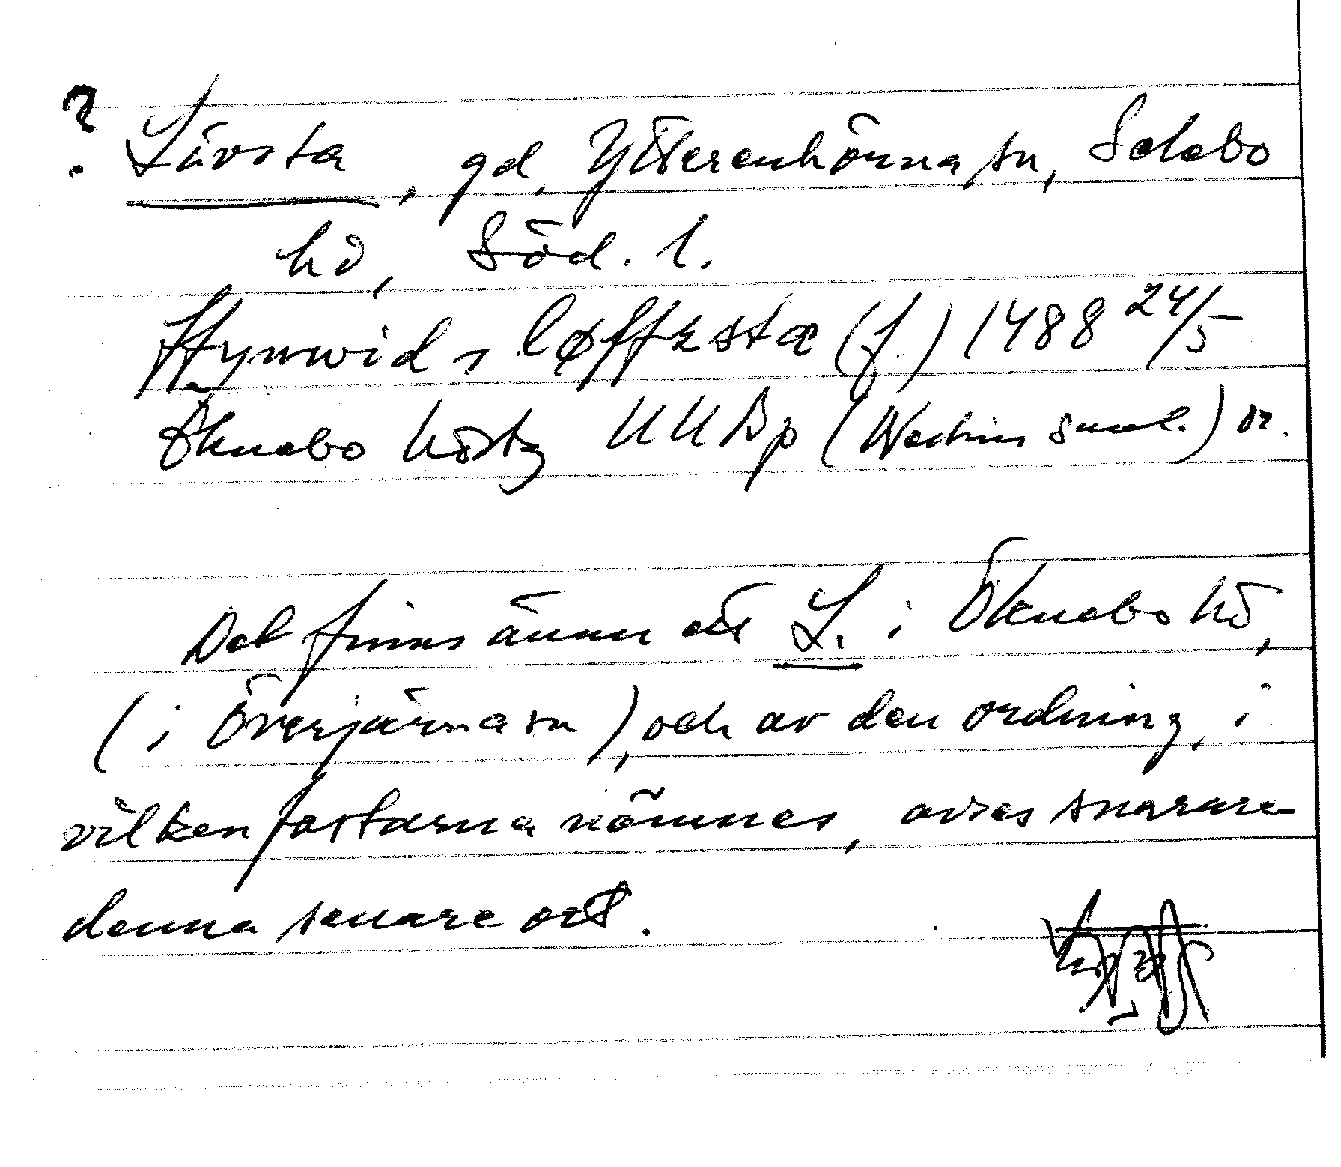 ? Lövsta, gd, Ytterenhörna sn, Selebo
hd, Söd. l.
Hynwid ı løffzstæ (f.) 1488 24/5
Öknebo hdstg UUBp (Westins saml.) or.
Det finns ännu ett L. i Öknebo hd,
(i Överjärna sn), och av den ordning, i
vilken fastarna nämnes, avses snarare
denna senare ort.